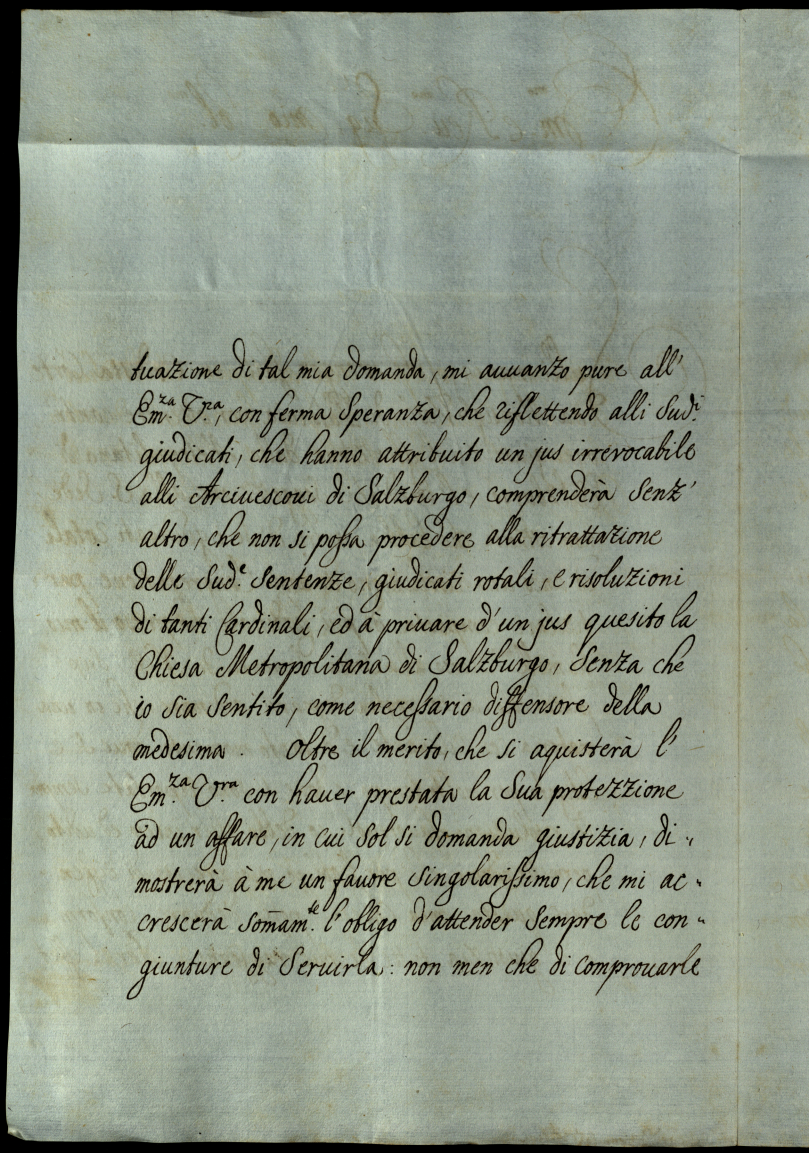 tuazione di tal mia domanda, mi auuanzo pure all'
Em.za V.ra, con ferma Speranza, che riflettendo alli Sud.i
giudicati, che hanno attribuito un jus irrevocabile
alli Arciuescoui di Salzburgo, comprenderà senz'
altro, che non si possa procedere alla ritrattazione
delle Sud.e Sentenze, giudicati rotali, e risoluzioni
di tanti Cardinali, ed à priuare d'un jus quesito la
Chiesa Metropolitana di Salzburgo, Senza che
io sia sentito, come necessario diffensore della
medesima. Oltre il merito, che si aquisterà l'
Em.za V.ra con hauer prestata la Sua protezzione
ad un affare, in cui sol si domanda giustizia, di„
mostrerà à me un fauore singolarissimo, che mi ac„
crescerà som̄am.te l'obligo d'attender sempre le con„
giunture di Seruirla: non men che di comprouarle